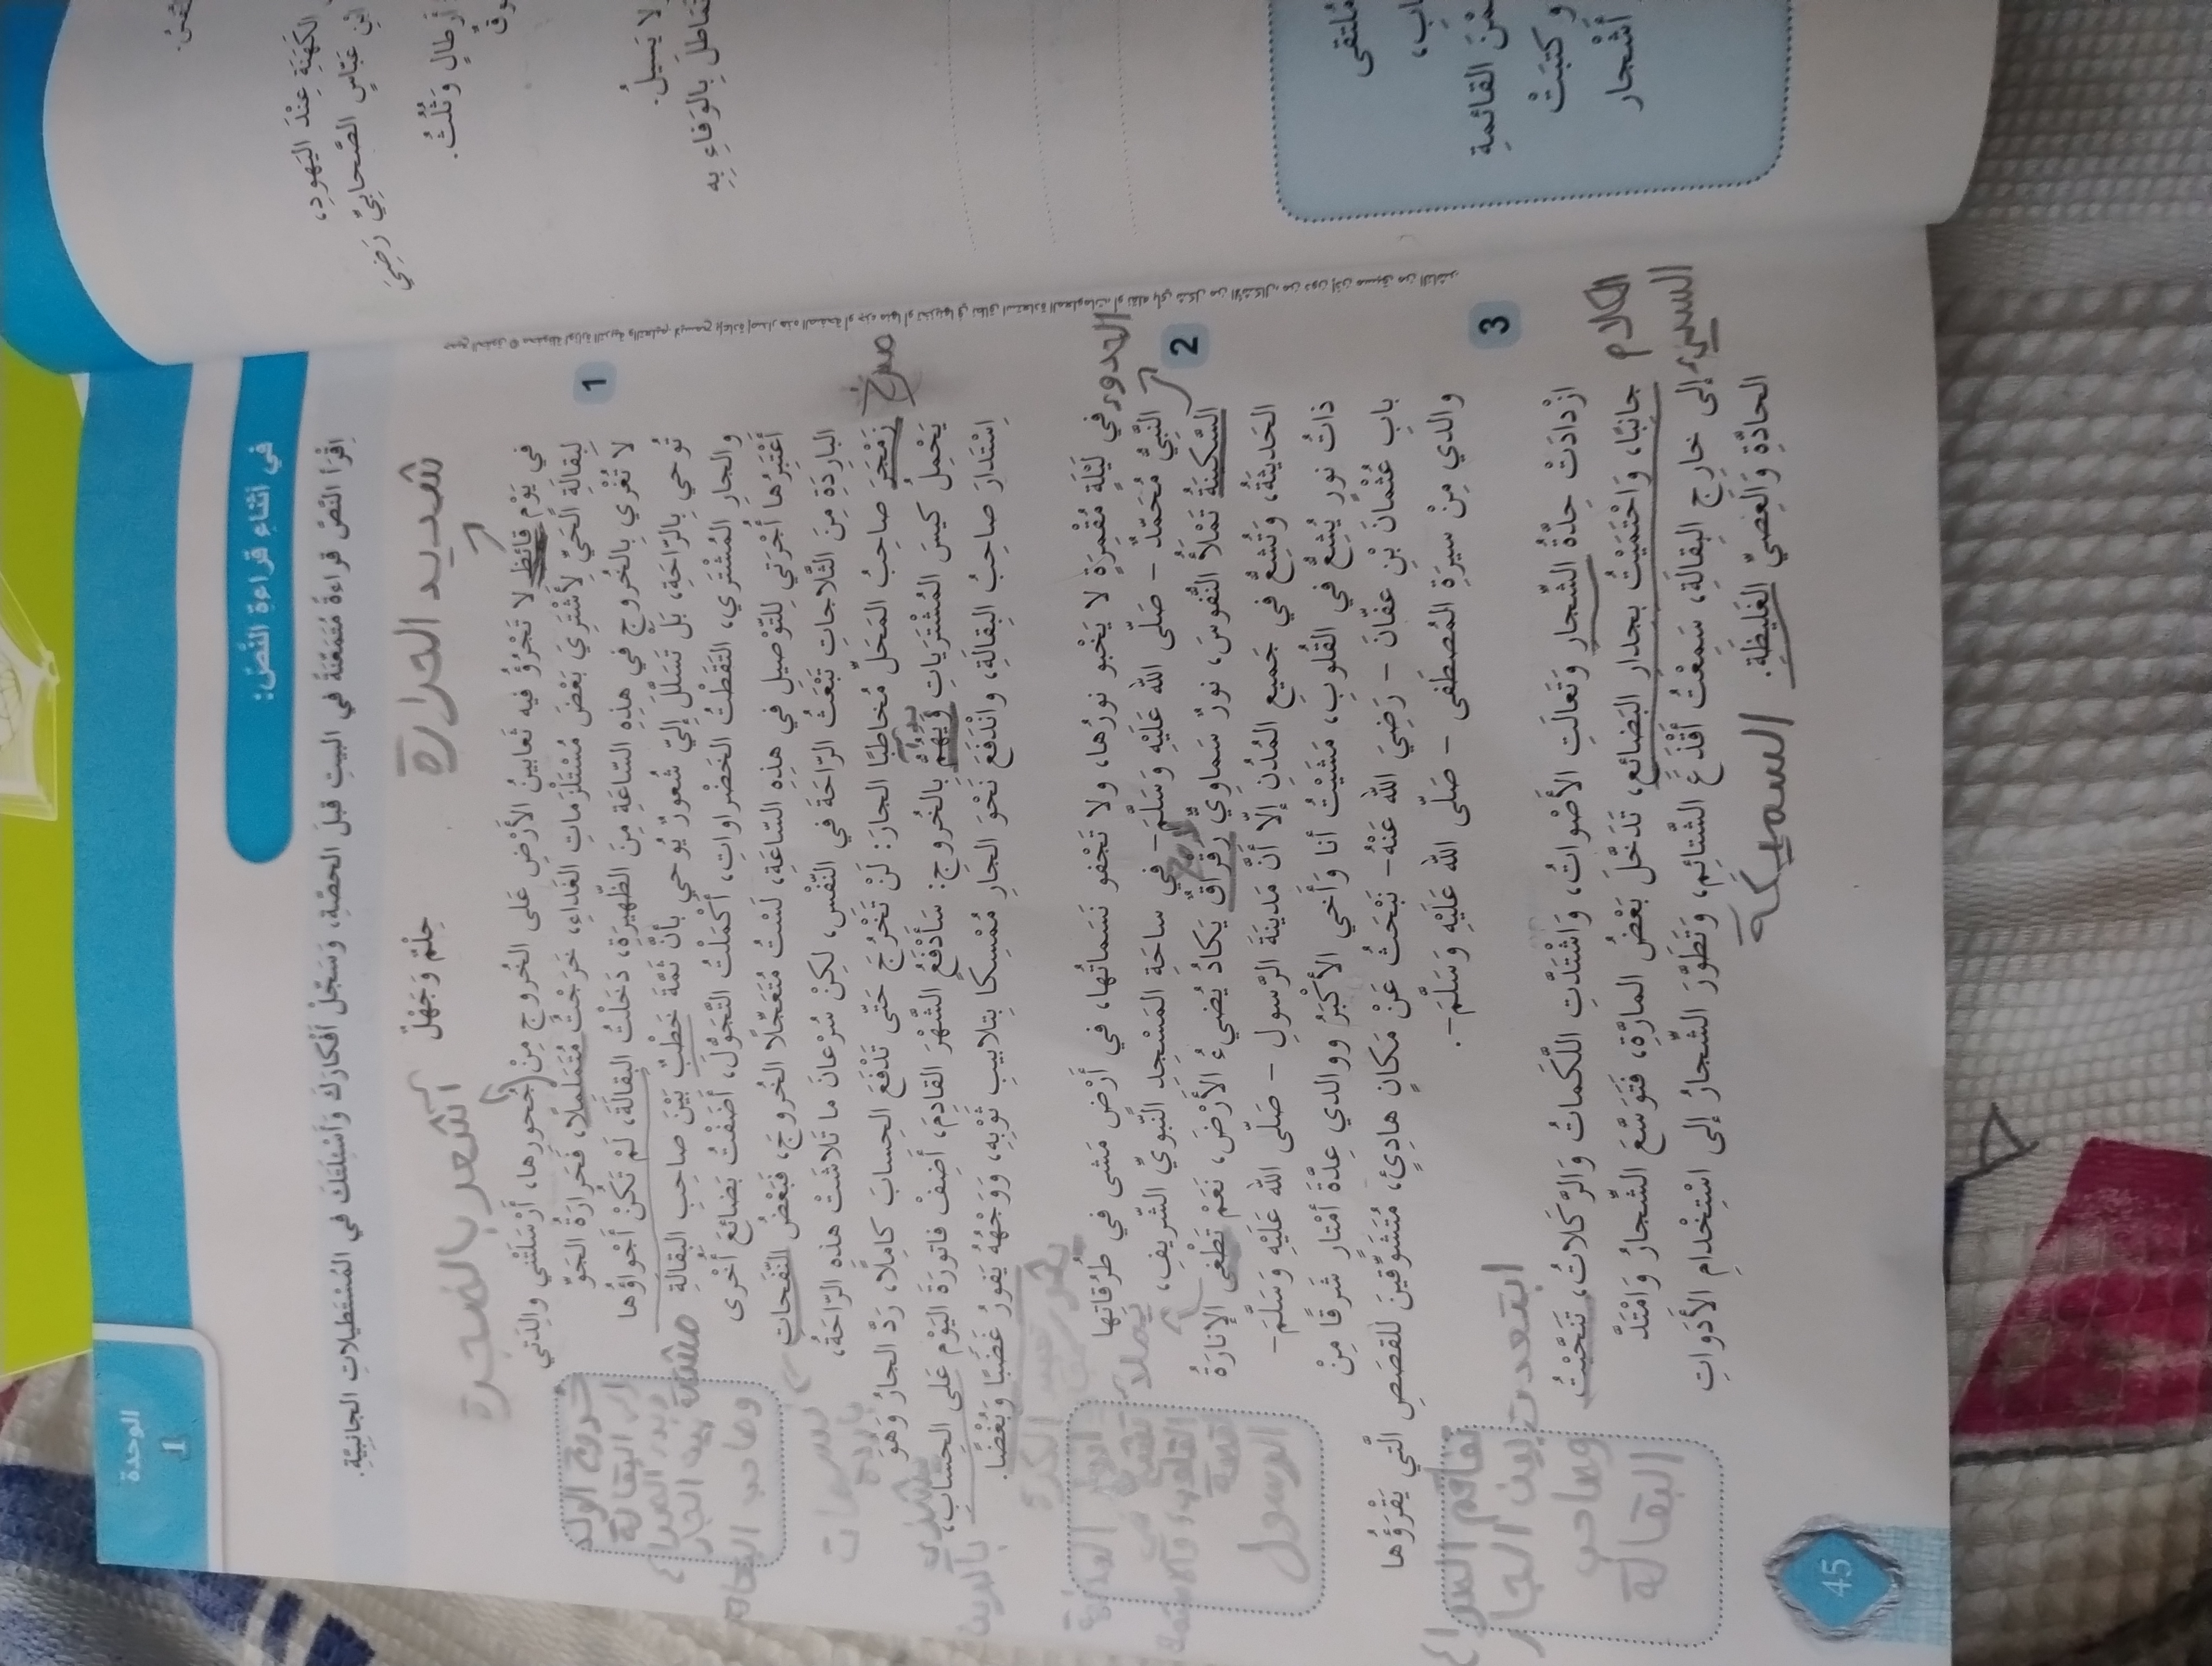 الوحدة
1
في أثناءِ قراءةِ النَّصّ:
اِقْرَأ النَّصَّ قراءةً مُتَمَعِّنَةً في البيتِ قبلَ الحصَّةِ، وَسَجِّلْ أَفْكارَكَ وَأَسْئِلَتَكَ في المُسْتَطيلاتِ الجانِبِيَّةِ.
شديد الحرارة
حِلْمٌ وَجَهْلٌ
أشعر بالضجرة
في يَوْمٍ قائِظٍ لا تَجْرُؤُ فيه ثَعابينُ الأَرْضِ عَلى الخُروجِ مِنْ جُحورِها، أَرْسَلَتْني والِدَتي
1
لِبِقالَةِ الحَيِّ لِأَشْتَرِيَ بَعْضَ مُسْتَلْزَماتِ الغَداءِ، خَرَجْتُ مُتَمَلْمِلًا، فَحَرارَةُ الجَوِّ
لا تُغْري بِالخُروجِ في هذِهِ السّاعَةِ مِنَ الظَّهيرَةِ، دَخَلْتُ البِقالَةَ، لَمْ تَكُنْ أَجْواؤُها
تُوحي بِالرّاحَةِ، بَلْ تَسَلَّلَ إِليّ شُعورٌ يُوحي بأنَّ ثَمَّةَ خَطْبٌ بَيْنَ صاحِبِ البِقالَةِ
والجارِ المُشْتَري، التَقَطْتُ الخَضْراواتِ، أَكْمَلْتُ التَّجَوُّلَ، أَضَفْتُ بَضائعَ أُخْرى
أَعْتَبِرُها أُجْرَتي لِلتّوْصيلِ في هذِهِ السّاعَةِ، لَسْتُ مُتَعَجِّلًا الخُروجَ، فَبَعْضُ النّفَحاتِ
البارِدَةِ مِنَ الثَّلاجاتِ تَبْعَثُ الرّاحَةَ في النّفْسِ، لكِنْ سُرْعانَ ما تَلاشَتْ هذهِ الرّاحَةُ،
زَمْجَرَ صاحِبُ المَحَلِّ مُخاطِبًا الجارَ: لَنْ تَخْرُجَ حَتّى تَدْفَعَ الحِسابَ كامِلًا، رَدَّ الجارُ وَهُوَ
يَحْمِلُ كيسَ المُشْتَرَياتِ وَيَهُمُّ بِالخُروجِ: سَأَدْفَعُ الشَّهْرَ القادِمَ، أَضِفْ فاتورَةَ اليَوْمِ عَلى الحِسابِ،
اِسْتَدارَ صاحِبُ البِقالَةِ، وانْدَفَعَ نَحْوَ الجارِ مُمْسِكًا بِتلابيبِ ثَوْبِهِ، وَوَجْهُهُ يَفورُ غَضَبًا وَبُغْضًا.
خروج الولد
إلى البقالة
بين الجار
وصاحب
مشكلة
نسمات
باردة
صرخ
بدأ
يشتري
بالدين
الكره
في لَيْلَةٍ مُقْمِرَةٍ لا يَخْبو نورُها، ولا تَجْفو نَسَماتُها، في أَرْضٍ مَشى في طُرُقاتِها
النَّبِيُّ مُحَمّدٌ – صَلّى الله عَلَيْهِ وَسَلَّمَ– في ساحَةِ المَسْجِدِ النَّبويِّ الشّريفِ،
2
السَّكينَةُ تَمْلَأُ النُّفوسَ، نورٌ سَماوِيٌّ رَقْراقٌ يَكادُ يُضيءُ الأَرْضَ، نَعَمْ تَطْغى الإنارَةُ
الحَديثَةُ، وَتُشِعُّ في جَميعِ المُدُنِ إلّا أَنَّ مَدينَةَ الرَّسولِ – صَلّى الله عَلَيْهِ وَسَلَّمَ–
ذاتُ نورٍ يُشِعُّ في القُلوبِ، مَشَيْتُ أنا وَأَخي الأكْبَرُ ووالدي عِدَّةَ أمْتارٍ شَرقًا مِنْ
بابِ عُثْمانَ بْنِ عفّانَ – رَضِيَ الله عَنْهُ– نَبْحَثُ عَنْ مَكانٍ هادِئٍ، مُتَشَوِّقينَ للقصَصِ الَّتي يَقْرَؤُها
والدي مِنْ سيرَةِ المُصطَفى – صَلّى الله عَلَيْهِ وَسَلَّمَ–.
الهدوء
لامع
يملأ
تشع في
الرسول
3
ابتعدت
ازْدادَتْ حِدَّةُ الشِّجارِ وَتَعالَتِ الأَصْواتُ، وَاشْتَدَّتِ اللَّكَماتُ وَالرَّكَلاتُ، تَنَحَّيْتُ
جانِبًا، وَاحْتَمَيْتُ بِجِدارِ البَضائعِ، تَدَخَّلَ بَعْضُ المارَّةِ، فَتَوَسَّعَ الشِّجارُ وَامْتَدَّ
إلى خارِجِ البِقالَةِ، سَمِعْتُ أَقْذَعَ الشَّتائِمِ، وَتَطَوَّرَ الشِّجارُ إلى اسْتِخْدامِ الأَدَواتِ
الحادَّةِ وَالعِصيِّ الغَليظَةِ.
السميكة
الكلام
السيئ
تفاقم
بين الجار
وصاحب
البقالة
45
جميع الحقوق © محفوظة لوزارة التربية والتعليم. لايسمح بإعادة إصدار هذه الصفحة أو جزء منها أو تخزينها في نطاق استعادة المعلومات، أو نقله بأي شكل من الأشكال، من دون إذن مسبق من الناشر.
الكَهَنَةِ عِنْدَ اليَهودِ،
ابْنِ عَبّاسٍ الصَّحابِيِّ رَضِيَ
أَرطالٍ وَثُلُثُ.
لا يَسيلُ.
بِالوَفاءِ بِهِ
القائمةِ
وكتبَتْ
أَشْجار